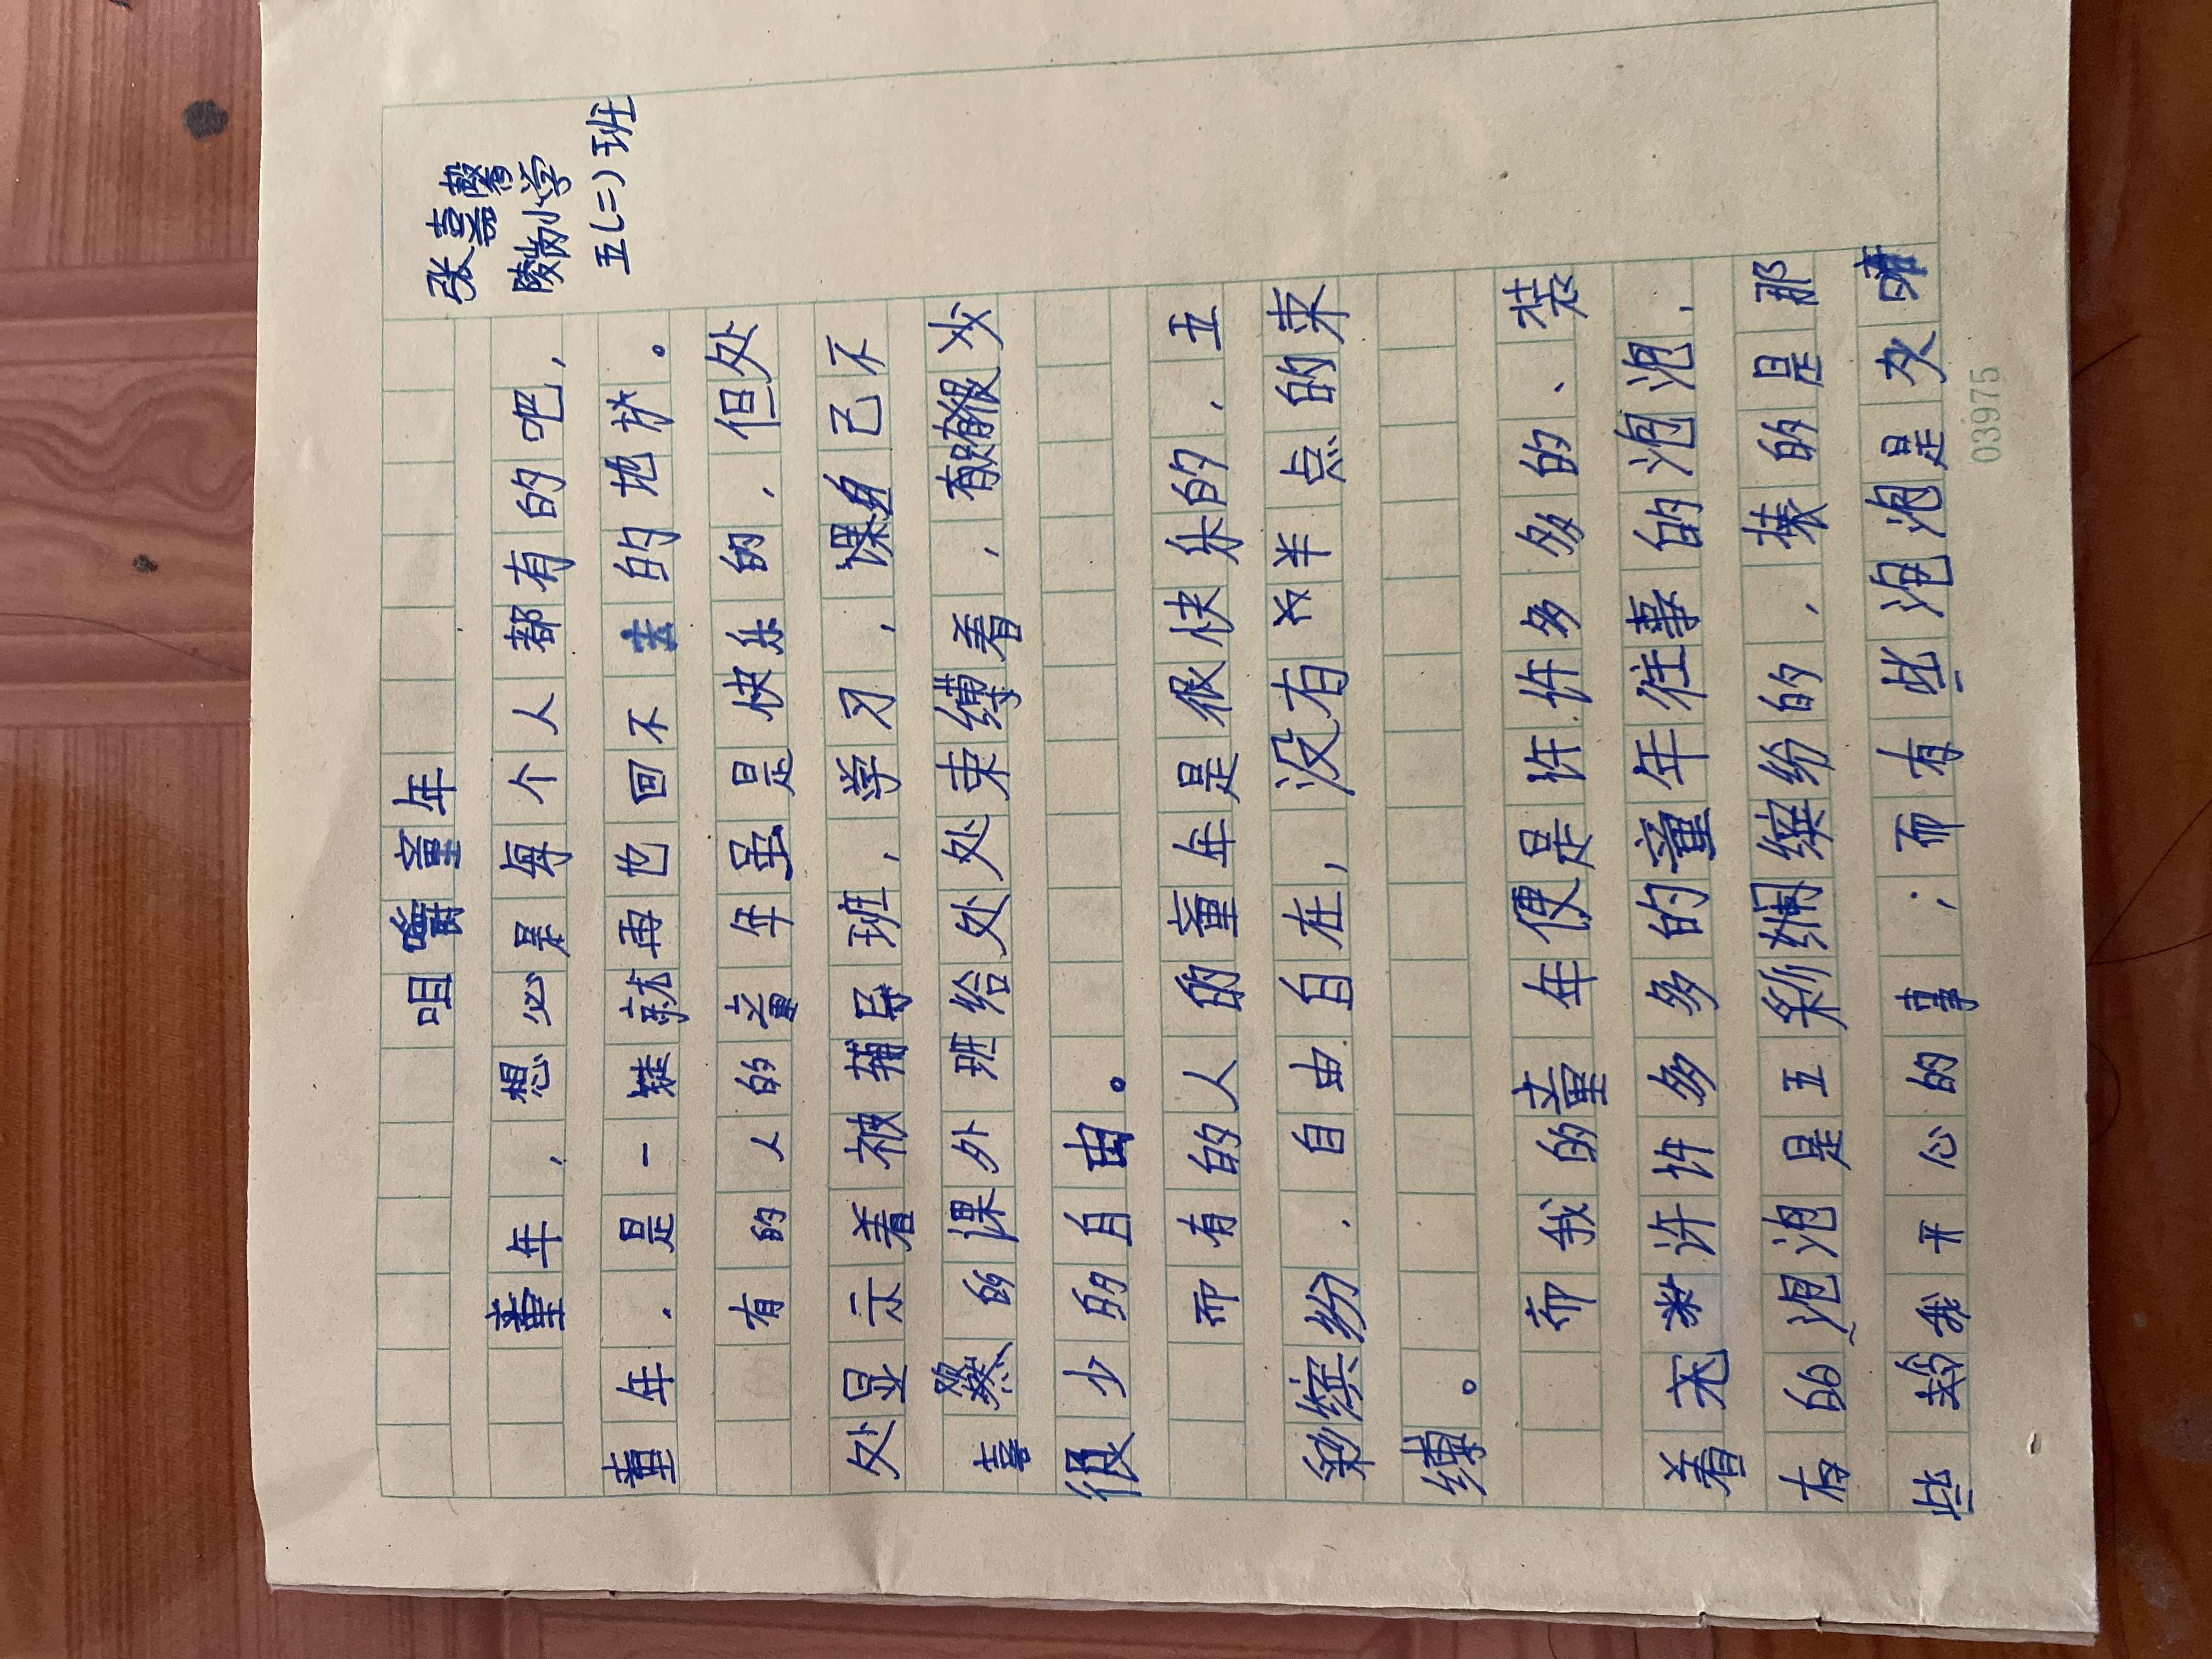 咀嚼童年
张嘉馨
小学
五(二)班
童年,想必是每个人都有的吧,
童年,是一就再也回不去的地方。
有的人的童年虽是快乐的,但处
处显示着被辅导班,学习,课己不
喜的课外班给处处束缚着,有很少
很少的自由。
而有的人的童年是很快乐的,五
彩缤纷,自由自在,没有半点的束
缚。
而我的童年便是许许多多的、装
着无数许许多多的童年往事的泡泡,
有的泡泡是五彩斓缤纷的,装的是那
些我开心的事;而有些泡泡是灰暗
03975